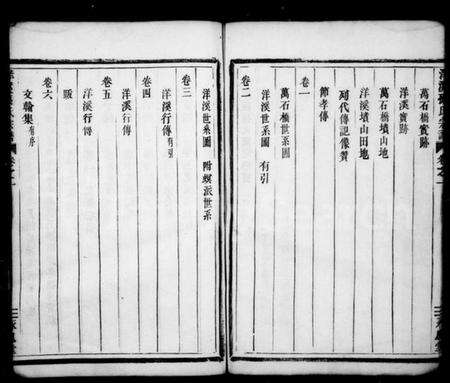 萬石橋實跡
洋溪實跡
萬石橋墳山地
洋溪墳山田地
列代傳記像贊
節孝傳
卷一
萬石橋世系圖
洋溪世系圖 有引
卷二
洋溪世系圖
卷三
洋溪行傳有引
卷四
洋溪行傳
卷五
洋溪行傳
跋
卷六
文翰集有序